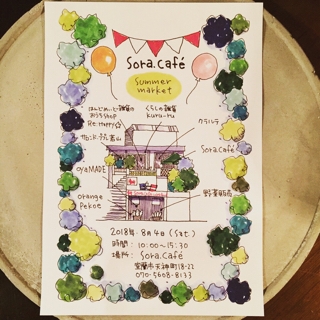 Sora.Café
Summer
market
はんどめいど雑貨の
おうちShop
Re·Happy☆
くらしの雑貨
kuru-ru
クラルテ
Sora.Café
oyaMADE
orange
Pekoe
野菜販売
2018年 8月4日 (Sat.)
時間: 10:00〜15:30
場所: Sora.Café
室蘭市天神町18-22
070-5608-8133